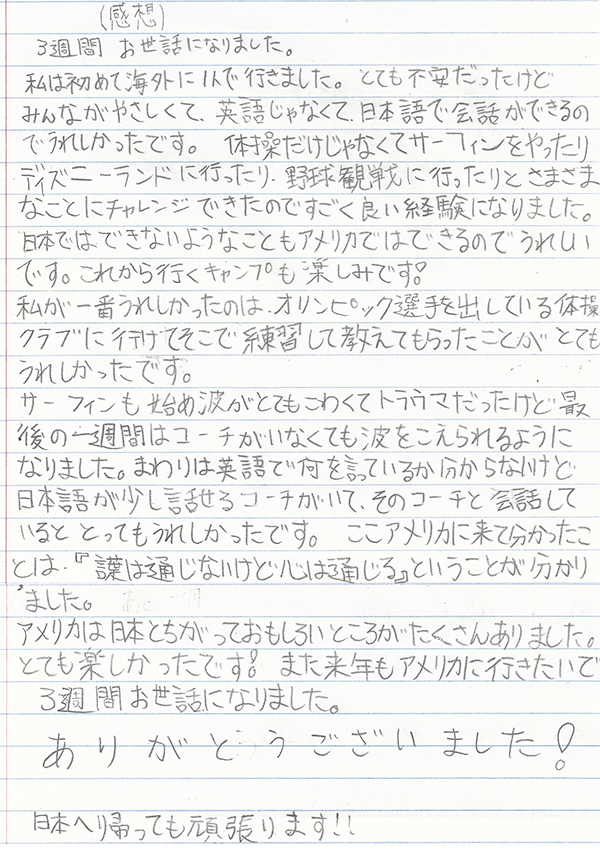 (感想)
3週間 お世話になりました。
私は初めて海外に1人で行きました。とても不安だったけど
みんながやさしくて、英語じゃなくて、日本語で会話ができるの
でうれしかったです。 体操だけじゃなくてサーフィンをやったり
ディズニーランドに行ったり、野球観戦に行ったりとさまざま
なことにチャレンジできたのですごく良い経験になりました。
日本ではできないようなこともアメリカではできるのでうれしい
です。これから行くキャンプも楽しみです!
私が一番うれしかったのは、オリンピック選手を出している体操
クラブに行けてそこで練習して教えてもらったことがとても
うれしかったです。
サーフィンも始め波がとてもこわくてトラウマだったけど最
後の一週間はコーチがいなくても波をこえられるように
なりました。まわりは英語で何を言っているか分からないけど
日本語が少し話せるコーチがいて、そのコーチと会話して
いると とってもうれしかったです。 ここアメリカに来て分かったこ
とは、『は通じないけど心は通じる』ということが分かり
ました。
アメリカは日本とちがっておもしろいところがたくさんありました。
とても楽しかったです! また来年もアメリカに行きたいで
3週間お世話になりました。
ありがとうございました!
日本へり帰っても頑張ります!!